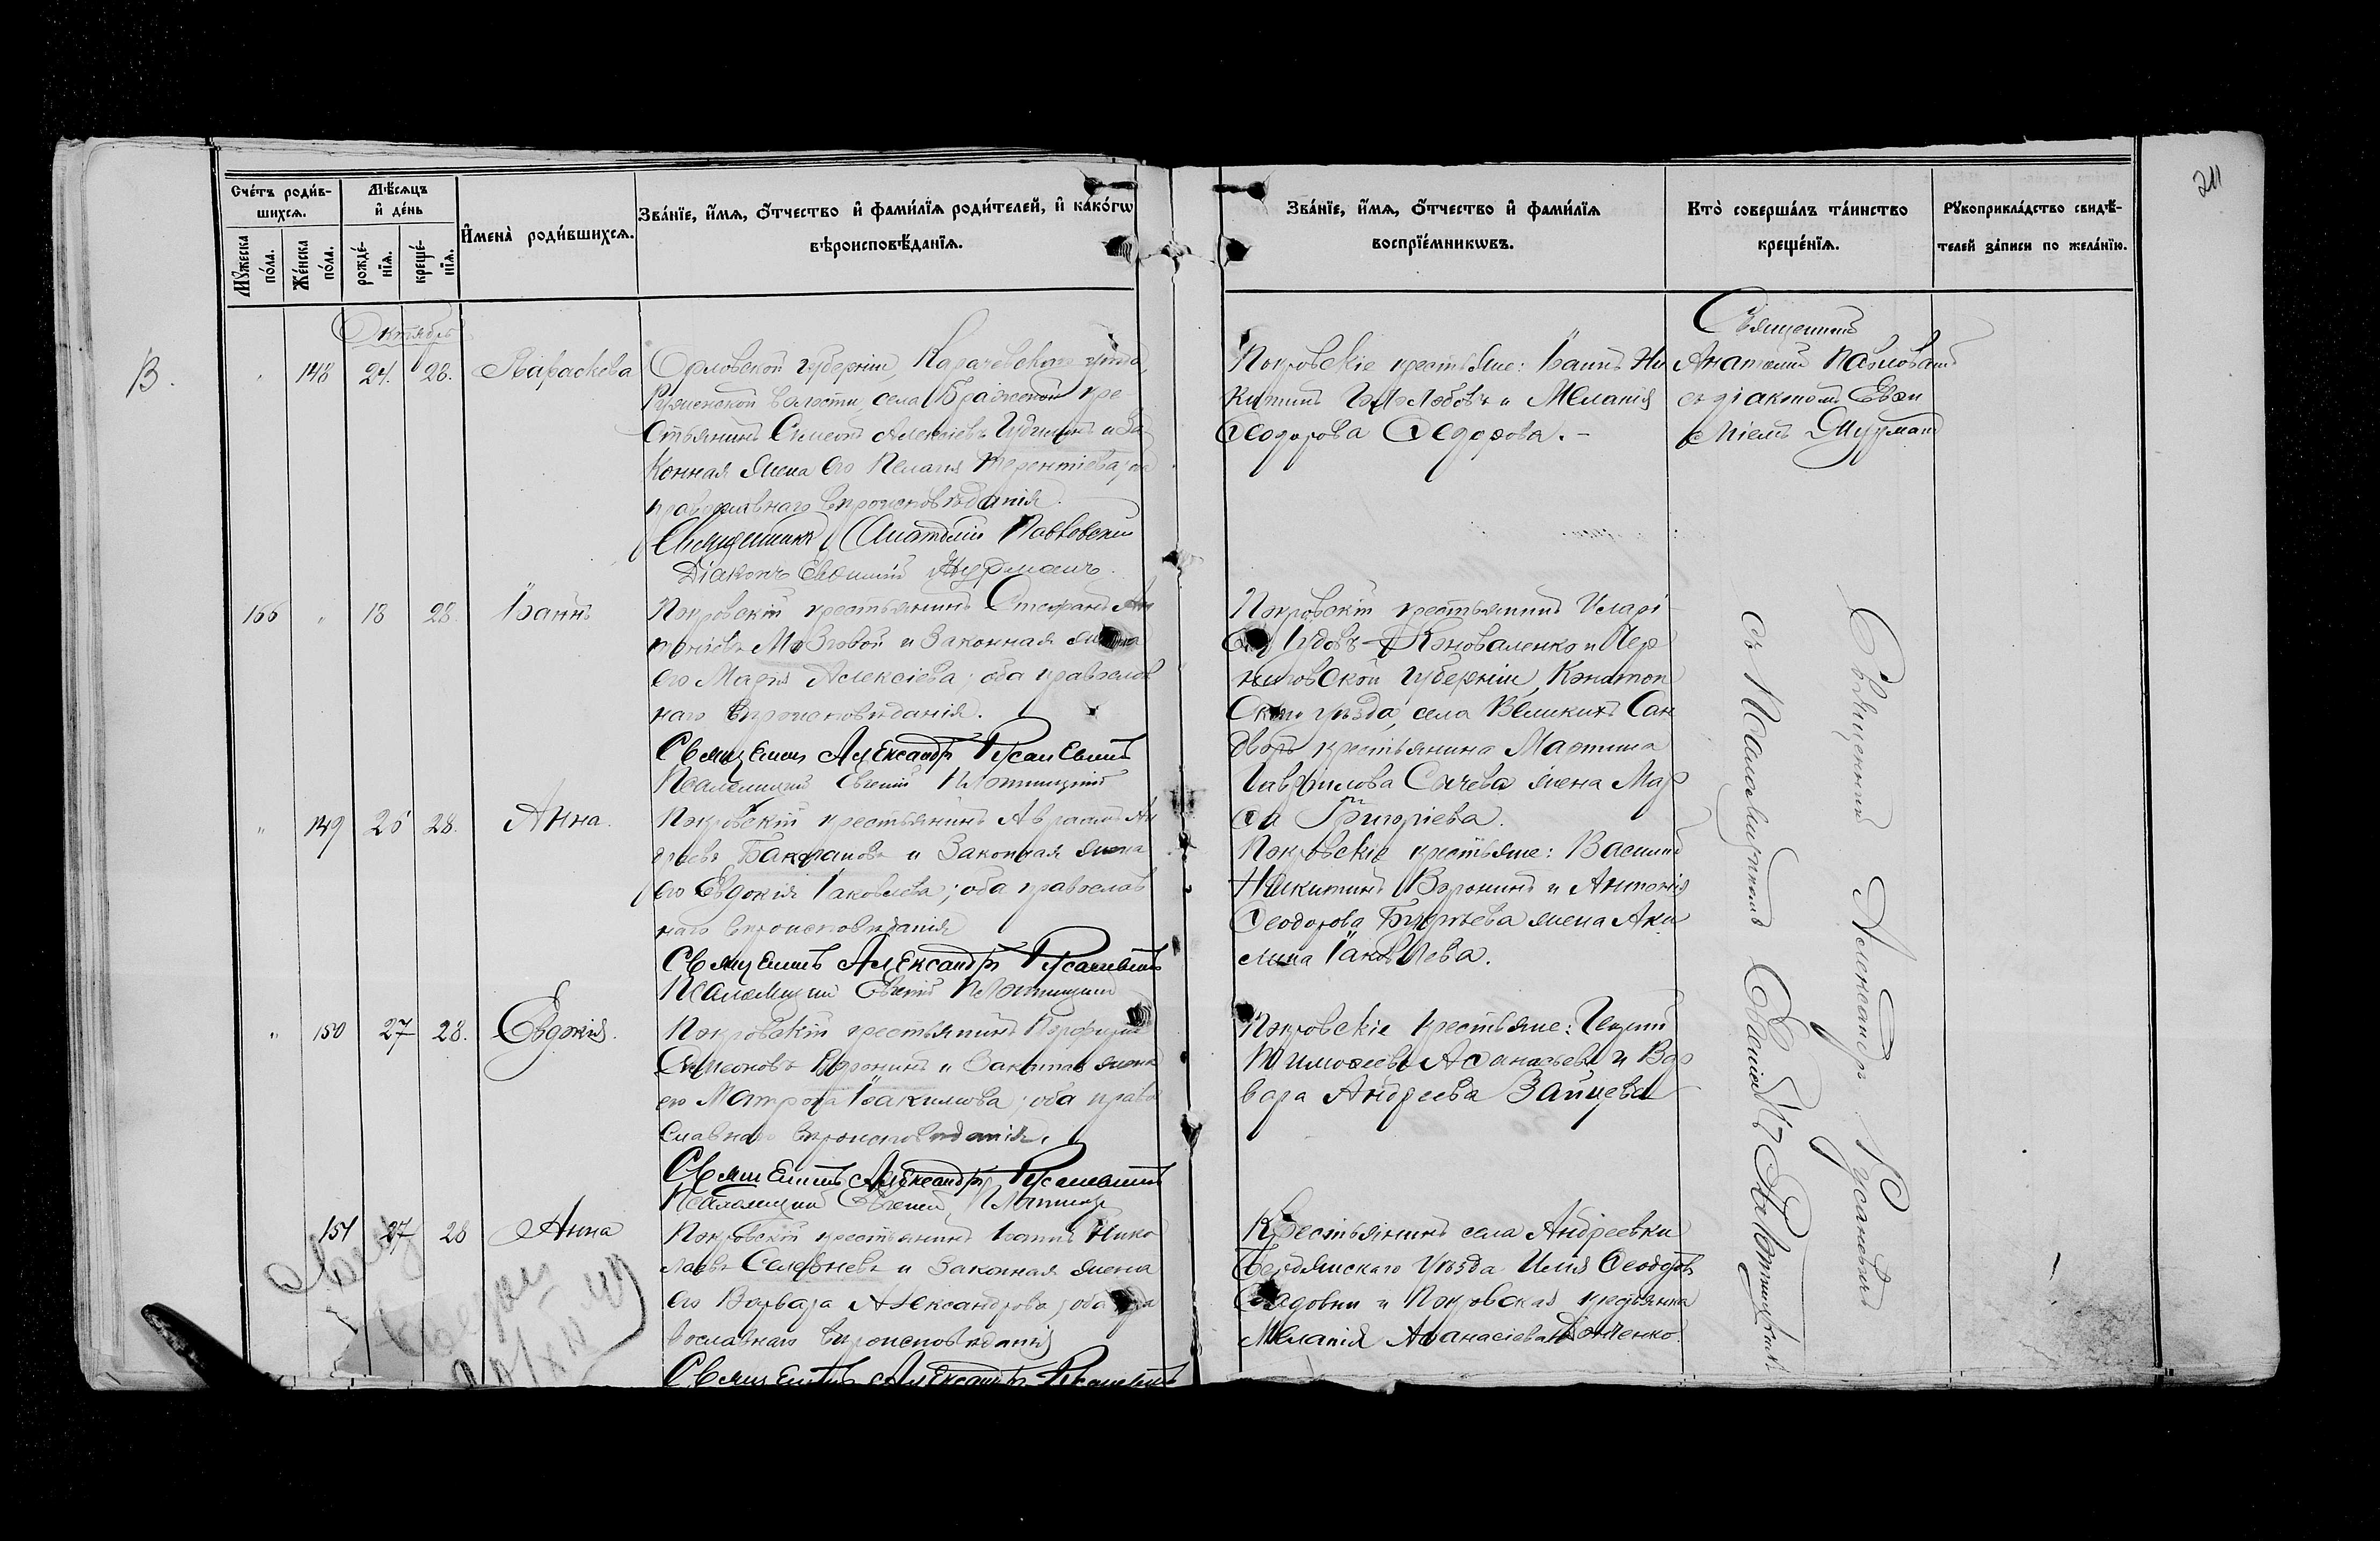 Счетъ родив-
шихся.
Мѣсяцъ
и день
Мужеска
пола.
Женска
пола.
рожде-
нія.
креще-
нія.
Имена родившихся.
Званіе, имя, отчество и фамилія родителей, и какогѡ
вѣроисповѣданія.
Званіе, имя, отчество и фамилія
воспріемникѡвъ.
Кто совершалъ таинство
крещенія.
Рукоприкладство свидѣ-
телей записи по желанію.
211
В.
Октябрь
148 24. 28. Параскева
Орловской губерніи, Карачевскаго уѣзда,
волости, села кре
стьянинъ Симеонъ Алексіевъ и за
конная жена его Пелагія Терентіева; оба
православнаго вѣроисповѣданія.
Священникъ Анатолій Павловскій
Діаконъ Евѳимій Шурманъ.
Покровскіе крестьяне: Іоаннъ Ни
китинъ и Меланія
Ѳеодорова Ѳедорова. -
Священникъ
Анатолій Павловскій
съ діакономъ Евѳи
міемъ Шурманъ
166 " 18 28. Іоаннъ
Покровскій крестьянинъ Стефанъ
Мозговой и законная жена
его Марія Алексіева; оба православ
наго вѣроисповѣданія.
Священникъ Александръ Русаневичъ
Псаломщикъ Евгеній Плотницкій
Покровскій крестьянинъ Иларі
Коноваленко и Чер
ниговской губерніи, Конотоп
скаго уѣзда, села Великихъ Сам
боръ крестьянина Мартина
Гавріилова Сычева жена Мар
ѳа Григоріева.
" 149 25 28. Анна.
Покровскій крестьянинъ Авраамъ Ан
дреевъ и законная жена
его Евдокія Іаковлева; оба православ
наго вѣроисповѣданія
Священникъ Александръ Русаневичъ
Псаломщикъ Евгеній Плотницкій
Покровскіе крестьяне: Василій
Никитинъ Воронинъ и Антонія
Ѳеодорова жена Аки
лина Іаковлева.
" 150 27 28. Евдокія.
Покровскій крестьянинъ Порфирій
Симеоновъ Воронинъ и законная жена
его Матрона Іоакимова; оба право
славнаго вѣроисповѣданія.
Священникъ Александръ Русаневичъ
Псаломщикъ Евгеній Плотницк
Покровскіе крестьяне:
Тимоѳеевъ Аѳанасьевъ и Вар
вара Андреева Зайцева
151 27 28 Анна
Покровскій крестьянинъ Іоаннъ Нико
лаевъ и законная жена
его Варвара Александрова; оба пра
вославнаго вѣроисповѣданія
Священникъ Александръ Русаневичъ
Крестьянинъ села Андреевки
Бердянскаго уѣзда Илія Ѳеодоровъ
и Покровская крестьянка
Меланія Аѳанасіева
Священникъ Александръ Русаневичъ
съ Псаломщикомъ Евгеніемъ Плотницкимъ.